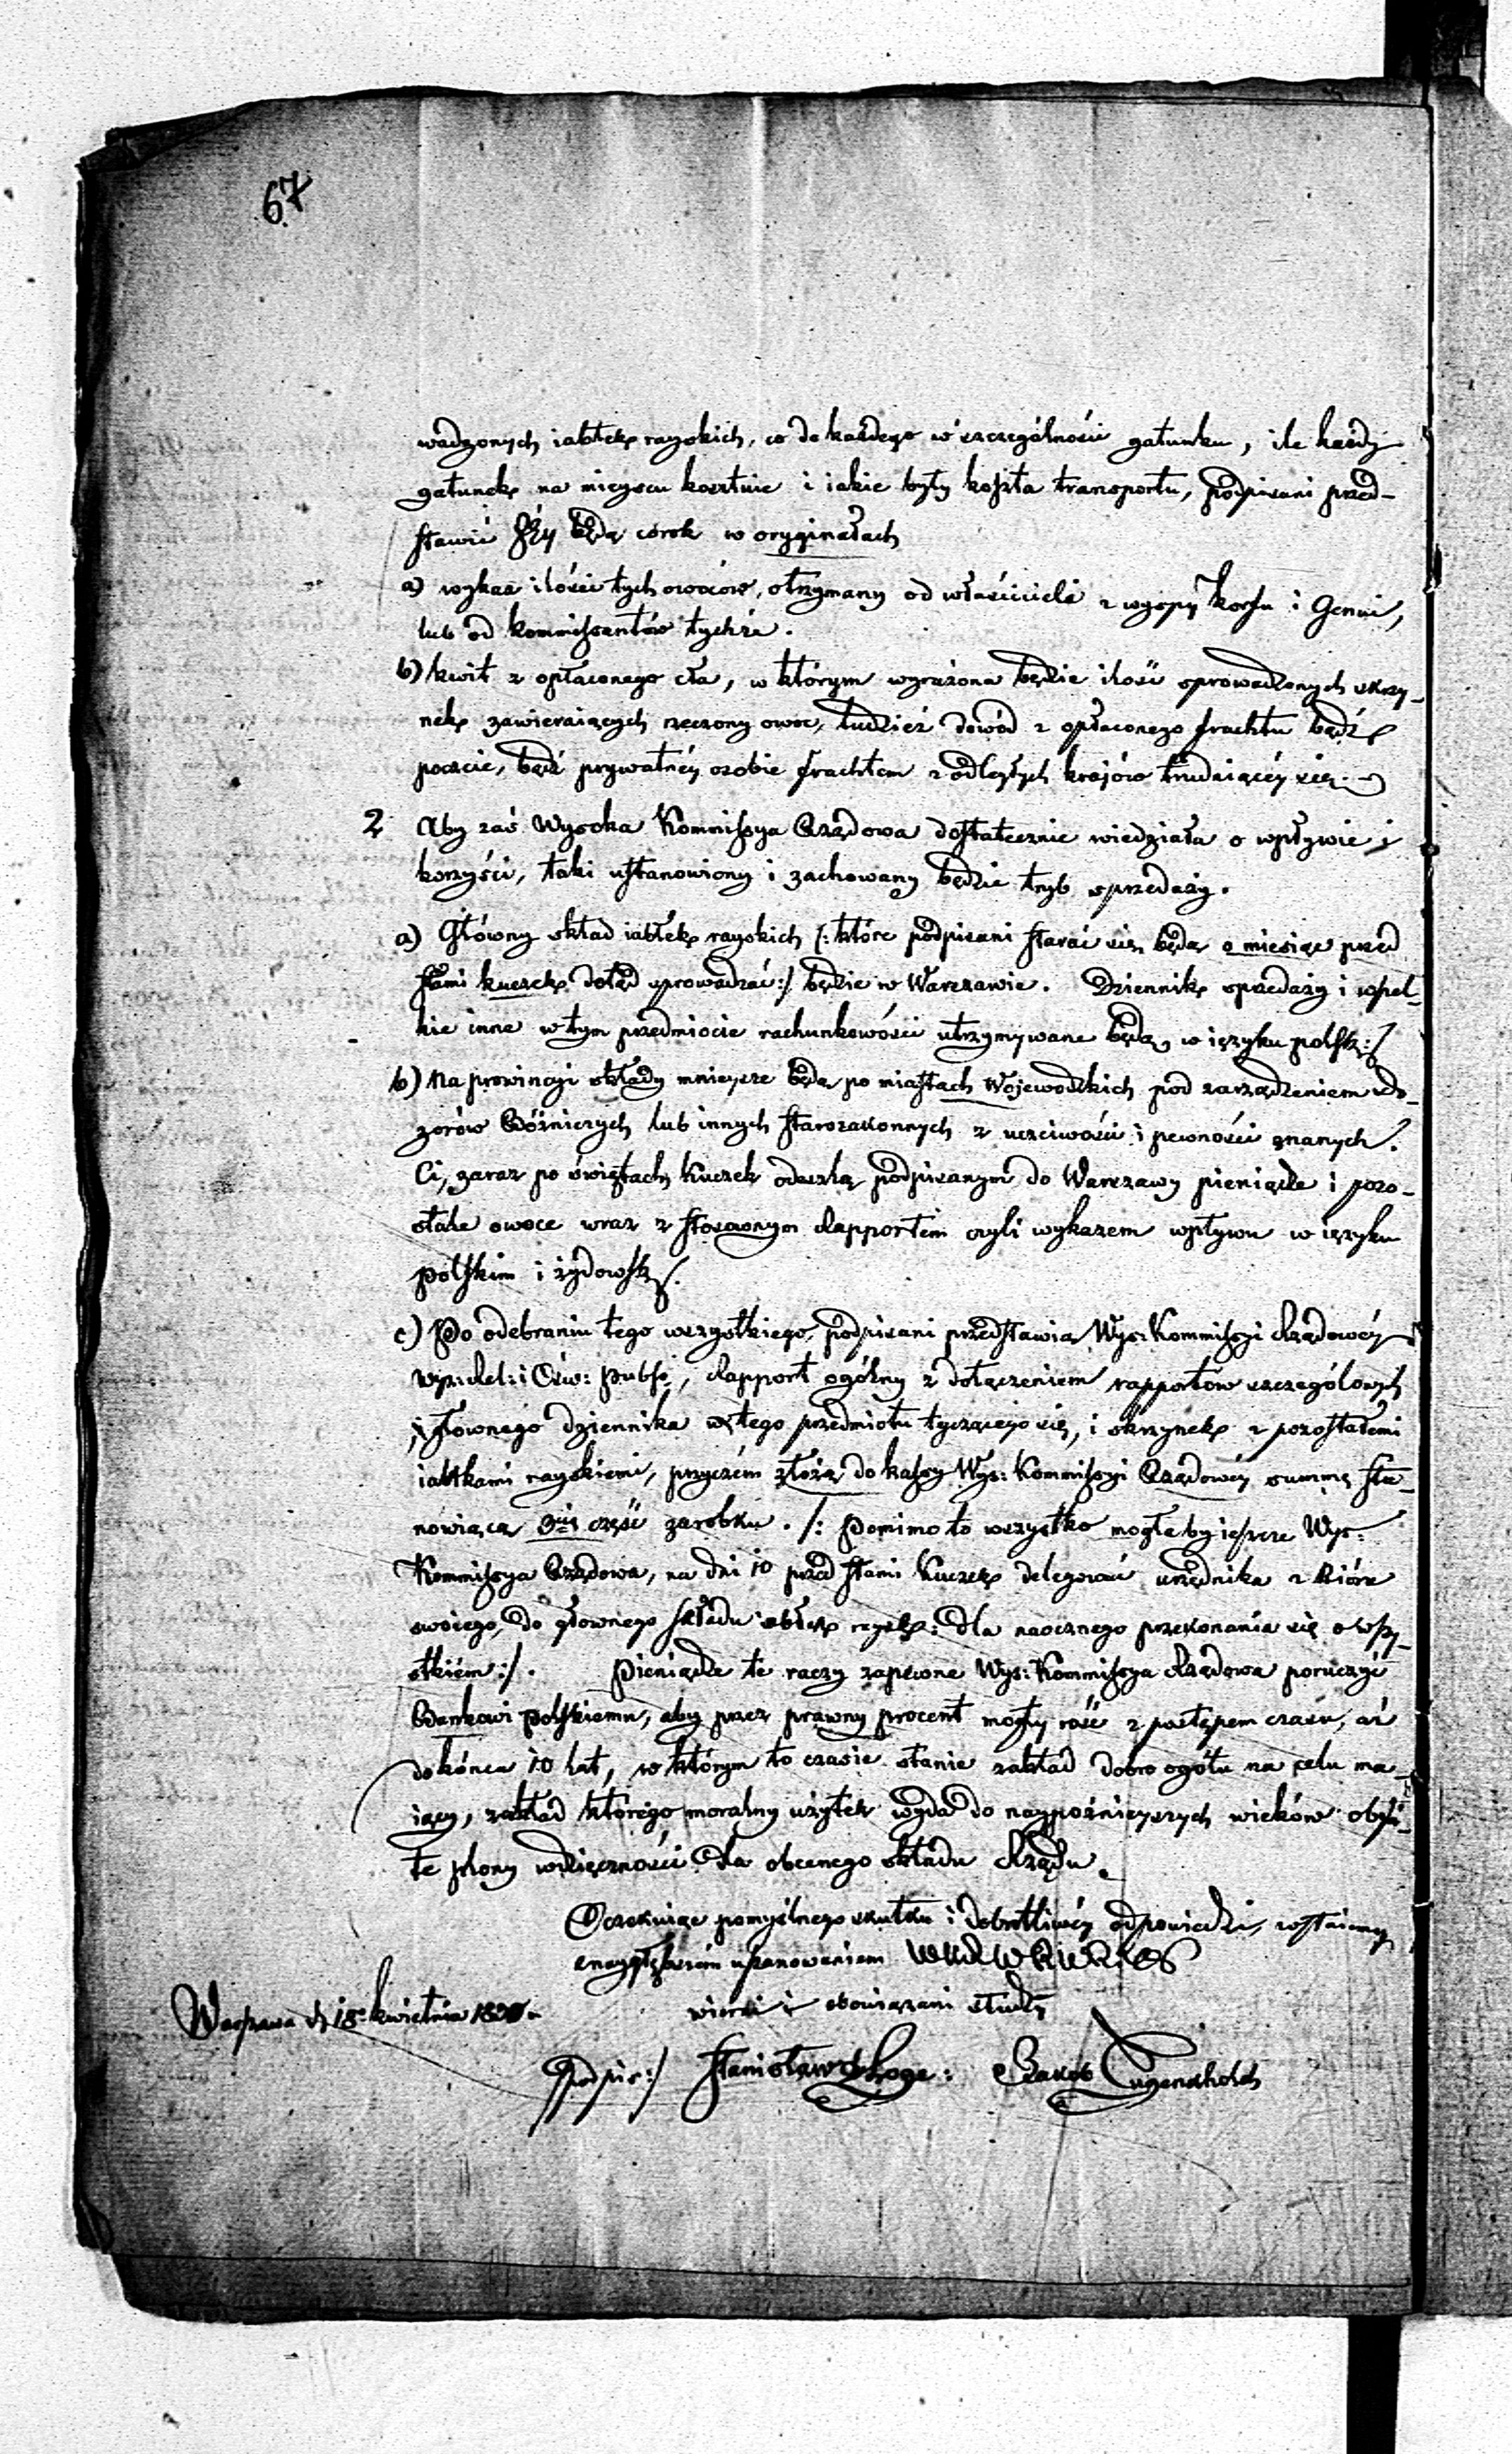 67
wadzonych iabłek rayskich, co do każdego w szczególności gatunku, ile każdy
gatunek na mieyscu kosztuie i iakie były koszta transportu, podpisani przed-
stawić będą corok w oryginałach
a) wykaz ilości tych owoców, otrzymany od właścicieli z wyspy Korfu i Genui,
lub od kommissantów tychże.
b) kwit z opłaconego cła, w którym wyrażona będzie ilość sprowadzonych skrzy-
nek zawieraiących rzeczony owoc, tudzież dowód z opłaconego frachtu bądź
poczcie, bądź prywatnéy osobie frachtem z odległych krajów trudniącéy się.
2 Aby zaś Wysoka Kommissya Rządowa dostatecznie wiedziała o wpływie i
korzyści, taki ustanowiony i zachowany będzie tryb sprzedaży.
a) Główny skład iabłek rayskich /: które podpisani starać się będą o miesiąc przed
stami kuczek dotąd sprowadzać :/ będzie w Warszawie. Dziennik sprzedaży i wszel-
kie inne w tym przedmiocie rachunkowości utrzymywane będą w ięzyku polsk:/
b) Na prowincyi składy mnieysze będą po miastach Wojewodzkich pod zarządzeniem do-
zorów Bóźniczych lub innych starozakonnych z uczciwości i pewności znanych.
Ci, zaraz po świętach Kuczek odeszlą podpisanym do Warszawy pieniądze i pozo-
stałe owoce wraz z stosownym Rapportem czyli wykazem wpływu w ięzyku
polskim i żydowsk.
c) Po odebraniu tego wszystkiego, podpisani przedstawią Wys: Kommissyi Rządowéy
Wyz: Rel: i Ośw: Publ:, Rapport ogólny z dołączeniem rapportow szczególowych
i głownego dziennika tego przedmiotu tyczącego się, i skrzynek z pozostałemi
iabłkami rayskiemi, przyczém złożą do kassy Wys: Kommissyi Rządowéy summę sta-
nowiącą 3cią część zarobku. /: Pomimo to wszystko mogłaby ieszcze Wys:
Kommissya Rządowa, na dni 10 przed stami Kuczek delegować urzędnika z Bióra
swoiego, do głownego składu iabłek raysk: dla naocznego przekonania się o wszy-
stkiém :/. Pieniądze te raczy zapewne Wys: Kommissya Rządowa poruczyć
Bankowi Polskiemu, aby przez prawny procent mogły rość z postępem czasu, aż
do końca 10 lat, w którym to czasie stanie zakład dobro ogółu na celu ma-
iący, zakład którego moralny użytek wyda do naypóźnieyszych wieków obfi-
te plony wdzięczności dla obecnego składu Rządu.
Oczekuiąc pomyślnego skutku i dobrotliwéy odpowiedzi, zostaiemy
z naygłębszém uszanowaniem
wierni i obowiązani słudzy
Warszawa d. 18 kwietnia
Podpis:/ Stanisław Hoge: Jakob Tugendhold